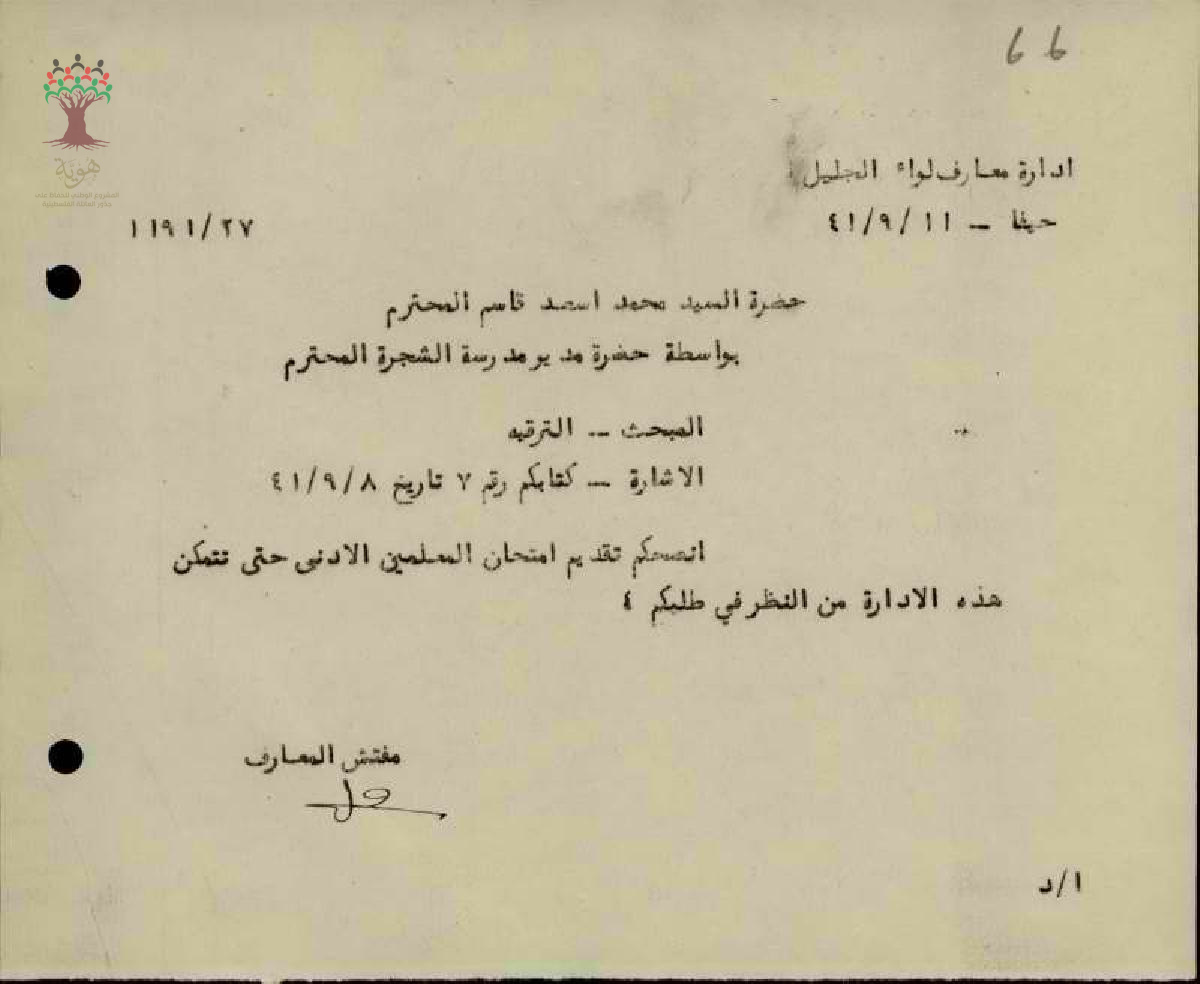 66
هوية
المشروع الوطني للحفاظ على
جذور العائلة الفلسطينية
ادارة معارف لواء الجليل
حيفا - ٤١/٩/١١
١١٩١/٢٧
حضرة السيد محمد اسعد قاسم المحترم
بواسطة حضرة مدير مدرسة الشجرة المحترم
المبحث - الترقيه
الاشارة - كتابكم رقم ٧ تاريخ ٤١/٩/٨
انصحكم تقديم امتحان المعلمين الادنى حتى تتمكن
هذه الادارة من النظر في طلبكم ٤
مفتش المعارف
ا/د